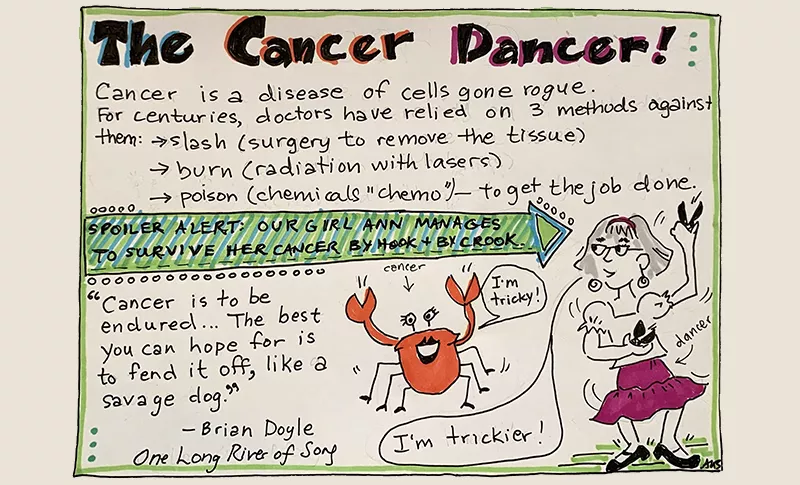 The Cancer Dancer!
Cancer is a disease of cells gone rogue.
For centuries, doctors have relied on 3 methods against
them: → slash (surgery to remove the tissue)
→ burn (radiation with lasers)
→ poison (chemicals "chemo") — to get the job done.
SPOILER ALERT: OUR GIRL ANN MANAGES
TO SURVIVE HER CANCER BY HOOK + BY CROOK.
cancer
I'm
tricky!
"Cancer is to be
endured... The best
you can hope for is
to fend it off, like a
savage dog."
— Brian Doyle
One Long River of Song
dancer
I'm trickier!
AHS